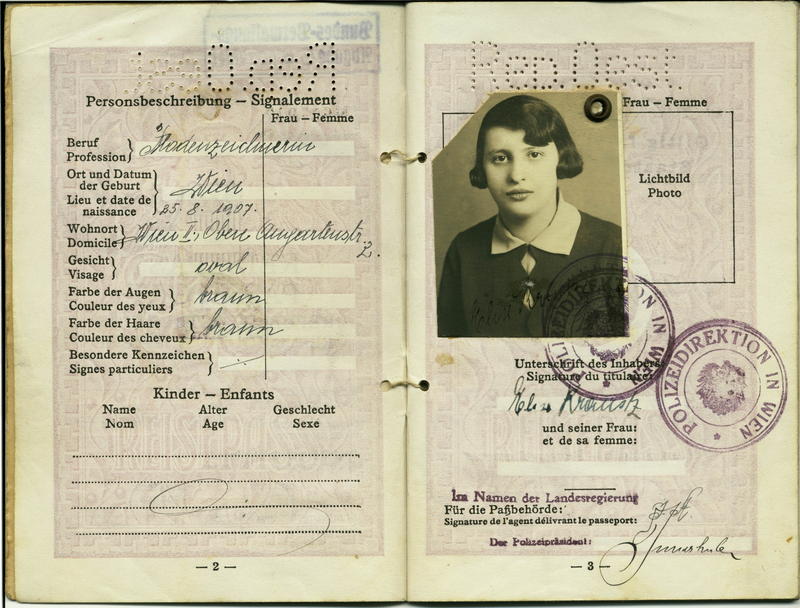 Rep.Oest.
Personsbeschreibung – Signalement
Frau – Femme
Beruf
Profession
Modenzeichnerin
Ort und Datum
der Geburt
Wien
Lieu et date de
naissance
25. 8. 1907.
Wohnort
Domicile
Wien II., Obere Augartenstr. 2.
Gesicht
Visage
oval
Farbe der Augen
Couleur des yeux
braun
Farbe der Haare
Couleur des cheveux
braun
Besondere Kennzeichen
Signes particuliers
Kinder – Enfants
Name Alter Geschlecht
Nom Age Sexe
– 2 –
Rep.Oest.
Frau – Femme
Lichtbild
Photo
POLIZEIDIREKTION IN WIEN
POLIZEIDIREKTION IN WIEN
Unterschrift des Inhabers
Signature du titulaire
und seiner Frau:
et de sa femme:
Im Namen der Landesregierung
Für die Paßbehörde:
Signature de l'agent délivrant le passeport:
Der Polizeipräsident:
– 3 –